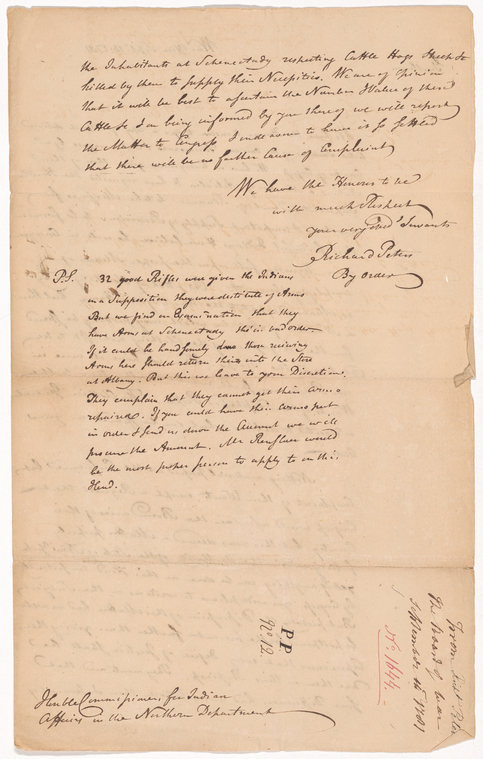 the Inhabitants at Schenectady respecting Cattle Hogs Sheep &c
killed by them to supply their Necessities. We are of Opinion
that it will be best to ascertain the Number & Value of these
Cattle &c & on being informed by you thereof we will report
the Matter to Congress & endeavour to have it so settled
that there will be no farther Cause of Complaint
We have the Honour to be
with much Respect
your very Obed.t Servants
Richard Peters
By order
P.S. 32 good Rifles were given the Indians
on a Supposition they were destitute of Arms
But we find on Examination that they
have Arms at Schenectady tho' in bad order
If it could be handsomely done those receiving
Arms here should return theirs into the Store
at Albany. But this we leave to your Discretion.
They complain that they cannot get their Arms
repaired. If you could have their Arms put
in order & send us down the Account we will
procure the Amount. Mr Renslaer would
be the most proper person to apply to on this
Head.
Honble Commissioners for Indian
Affairs in the Northern Department
PP
No. 12.
From
The Board of War
September 1781
No. 1644.